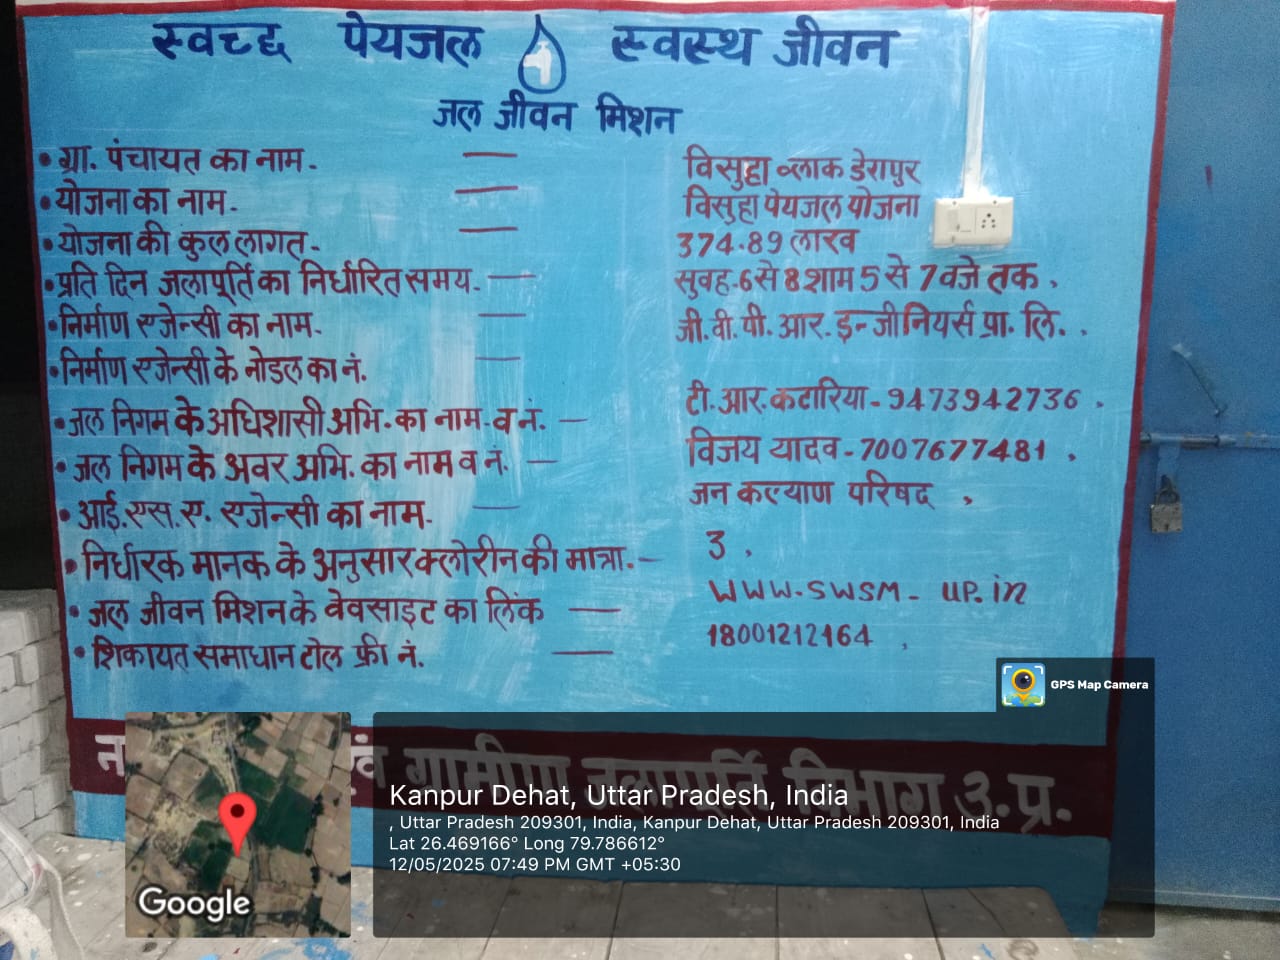 स्वच्छ पेयजल स्वस्थ जीवन
जल जीवन मिशन
• ग्रा. पंचायत का नाम. — विसुहा ब्लाक डेरापुर
• योजना का नाम. — विसुहा पेयजल योजना
• योजना की कुल लागत. — 374.89 लाख
• प्रति दिन जलापूर्ति का निर्धारित समय. — सुवह-6 से 8 शाम 5 से 7 वजे तक.
• निर्माण एजेन्सी का नाम. — जी.वी.पी.आर.इन्जीनियर्स प्रा. लि..
• निर्माण एजेन्सी के नोडल का नं. —
• जल निगम के अधिशासी अभि. का नाम. व नं. — टी.आर.कटारिया-9473942736.
• जल निगम के अवर अभि. का नाम व नं. — विजय यादव-7007677481.
• आई.एस.ए. एजेन्सी का नाम. — जन कल्याण परिषद,
• निर्धारक मानक के अनुसार क्लोरीन की मात्रा. — 3.
• जल जीवन मिशन के वेवसाइट का लिंक — www.swsm-up.in
• शिकायत समाधान टोल फ्री नं. — 18001212164,
ग्रामीण जलापूर्ति विभाग उ.प्र.
GPS Map Camera
Kanpur Dehat, Uttar Pradesh, India
, Uttar Pradesh 209301, India, Kanpur Dehat, Uttar Pradesh 209301, India
Lat 26.469166° Long 79.786612°
12/05/2025 07:49 PM GMT +05:30
Google